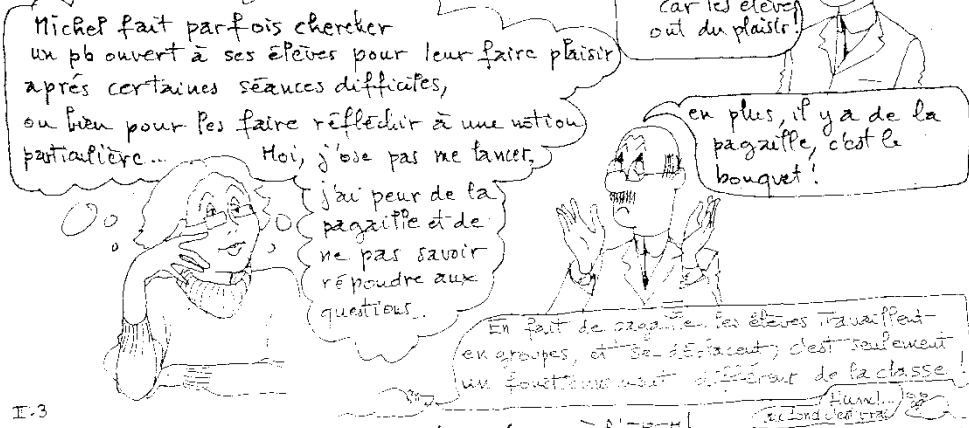 Michel fait parfois chercher
un pb ouvert à ses élèves pour leur faire plaisir
après certaines séances difficiles,
ou bien pour les faire réfléchir à une notion
particulière...
Moi, j'ose pas me lancer,
j'ai peur de la
pagaille et de
ne pas savoir
répondre aux
questions..
car les élèves
ont du plaisir!
en plus, il y a de la
pagaille, c'est le
bouquet!
En fait de pagaille, les élèves travaillent
en groupes, et se déplacent; c'est seulement
un fonctionnement différent de la classe!
Hum!...
au fond c'est vrai
II.3